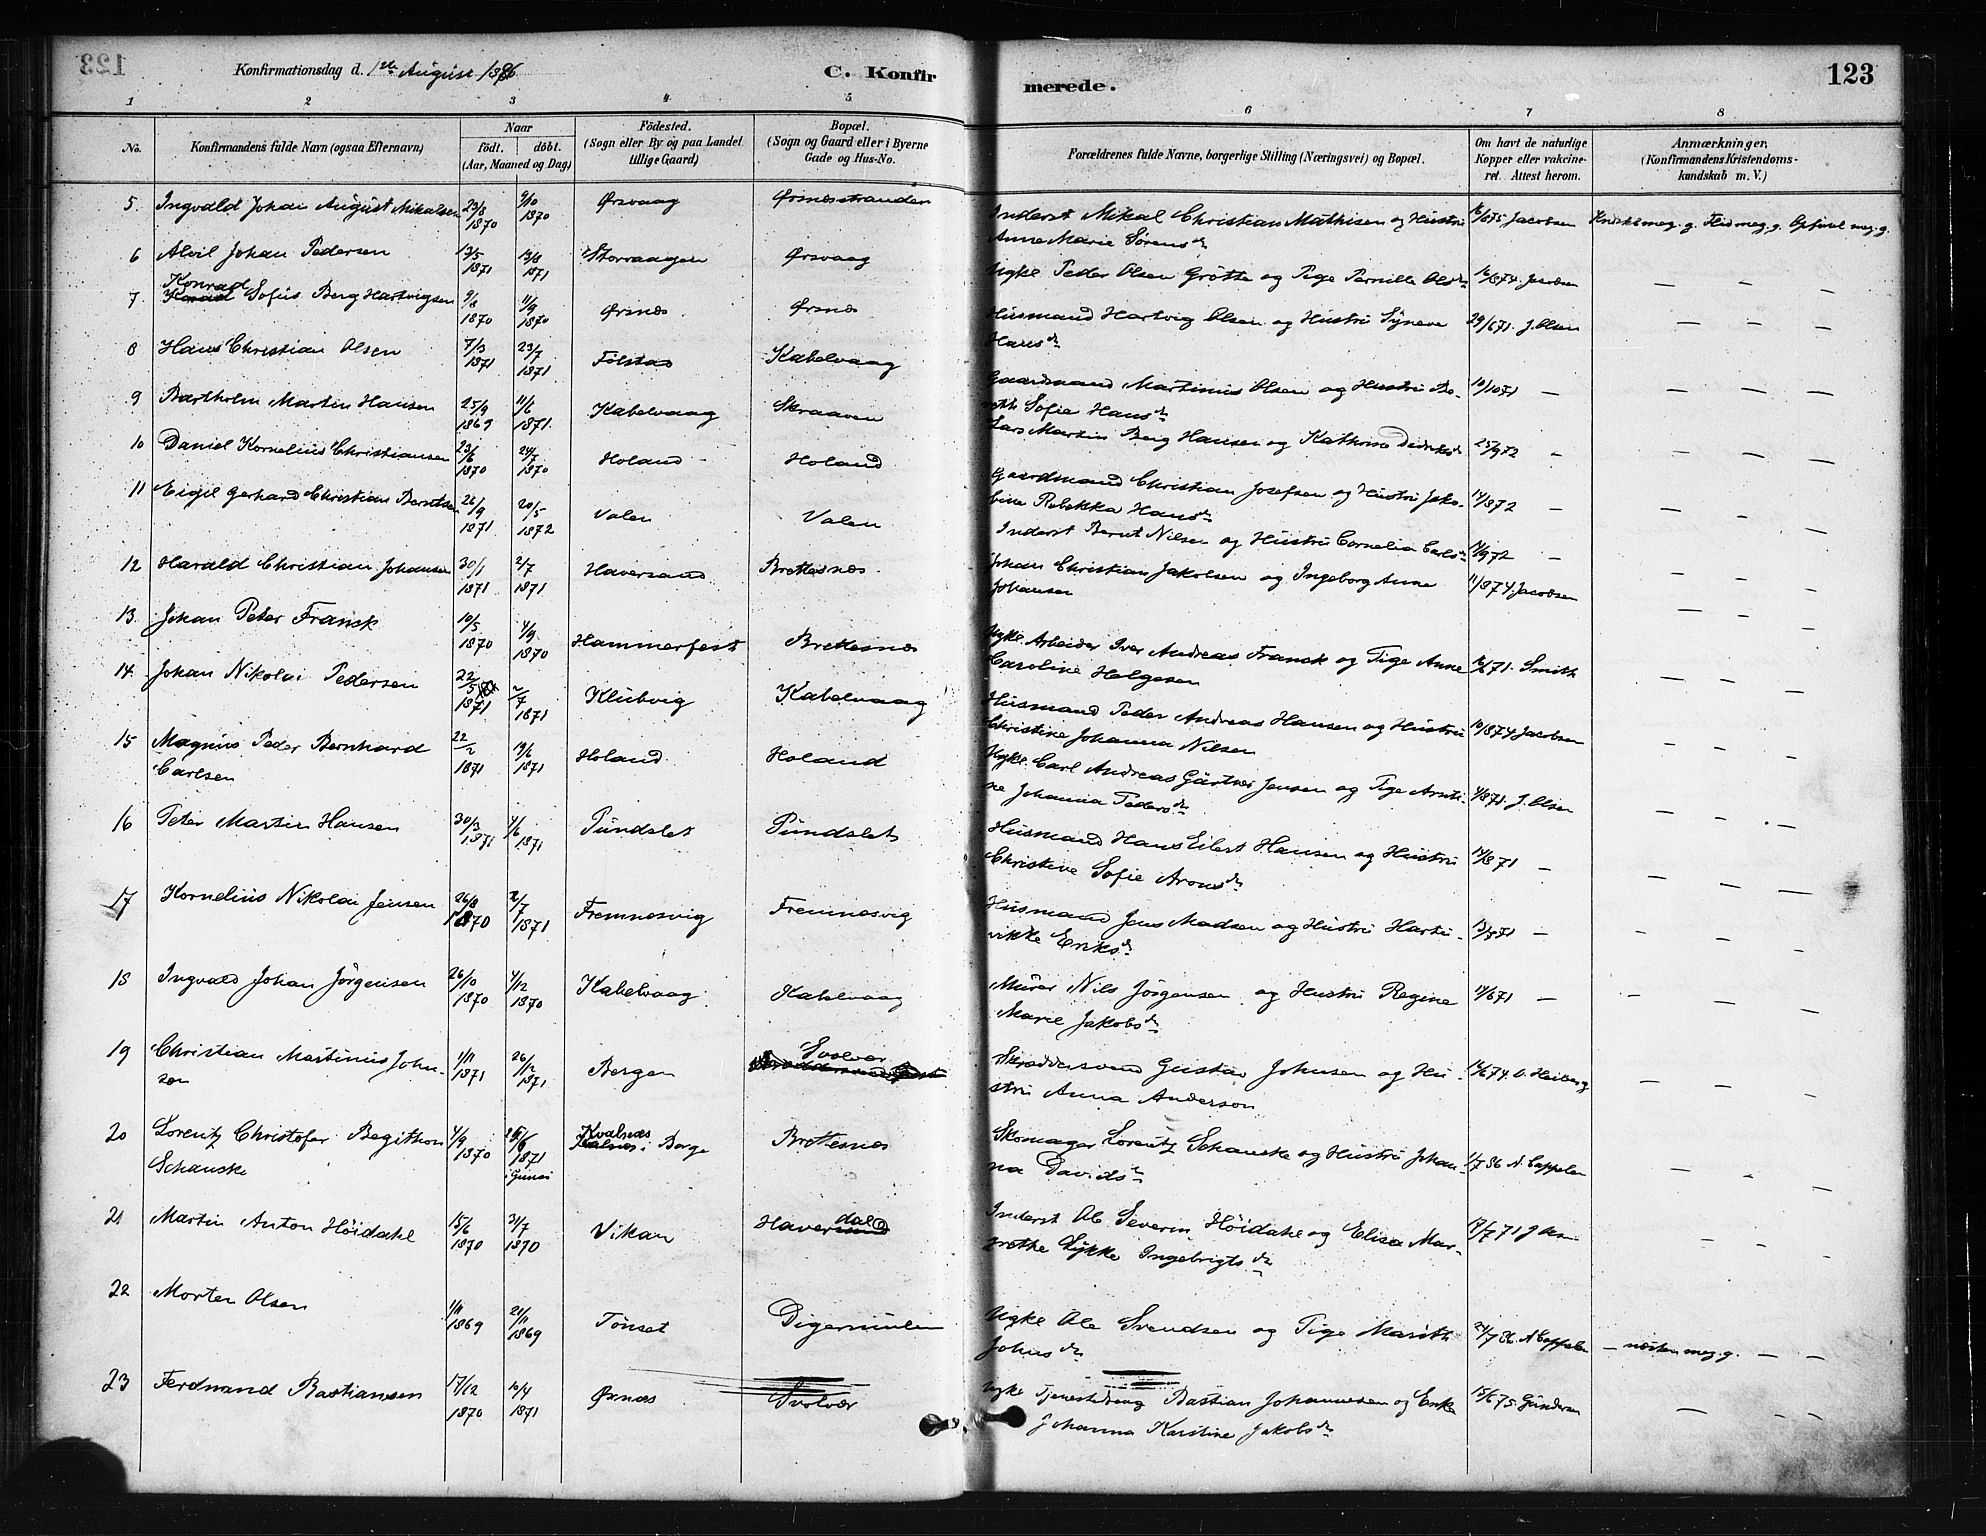 123
Konfirmationsdag d. 1ste August 1886
C. Konfirmerede.
123
1 2 3 4 5 6 7 8
No. Konfirmandens fulde Navn (ogsaa Efternavn) Naar födt. döbt. (Aar, Maaned og Dag) Födested. (Sogn eller By og paa Landet tillige Gaard) Bopæl. (Sogn og Gaard eller i Byerne Gade og Hus-No. Forældrenes fulde Navne, borgerlige Stilling (Næringsvei) og Bopæl. Om havt de naturlige Kopper eller vaccineret. Attest herom. Anmærkninger, (Konfirmandens Kristendomskundskab m. V.)
5. Ingvald Johan August Mikalsen 23/8 1870 9/10 1870 Ørsvaag Ørsnesstranden Inderst Mikal Christian Mathisen og Hustru Anne Marie Sørensdr Jacobsen
6 Alvil Johan Pedersen 13/5 1871 13/8 1871 Storvaagen Ørsvaag Ugke Peder Olsen Grötte og Pige Pernille Olsdr 16/874. Jacobsen — — —
7. Konrad Sofus Berg Hartvigsen 9/8 1870 11/9 1870 Ørsnes Ørsnes Husmand Hartvig Olsen og Hustru Syneve Hansdr 29/671. J. Olsen — — —
8 Hans Christian Olsen 7/3 1871 23/7 1871 Følstad Kabelvaag Gaardmand Martinus Olsen og Hustru Berethe Sofie Hansdr 10/1071 — — — —
9 Bartholm Martin Hansen 25/9 1869 11/6 1871. Kabelvaag Skraaven Lars Martin Berg Hansen og Kathrine Didriksdr 25/972 — — — —
10 Daniel Kornelius Christiansen 23/6 1870 24/7 1870 Holand Holand Gaardmand Christian Josefsen og Hustru Jakobine Rebekka Hansdr 14/872 — — — —
11 Eigil Gerhard Christian Berntsen 26/9 1871 20/5 1872 Valen Valen Inderst Bernt Nilsen og Hustru Cornelia Carlsdr 14/972 — — — —
12 Harald Christian Johansen 30/1 1871 2/7 1871 Haversand Brettesnes. Johan Christian Jakobsen og Ingeborg Anne Johansen 11/874 Jacobsen — — —
13. Johan Peter Franck 10/5 1870 4/9 1870 Hammerfest Brettesnes Ugke. Arbeider Iver Andreas Franck og Pige Anne Caroline Helgesen Smith — — —
14. Johan Nikolai Pedersen 22/5 1871 2/7 1871 Klubvig Kabelvaag Husmand Peder Andreas Hansen og Hustru Christine Johanna Nilsen 10/874 Jacobsen — — —
15 Magnus Peder Bernhard Carlsen 22/2 1871 18/6 1871 Holand Holand Ugke. Carl Andreas Gärtner Jensen og Pige Arntine Johanna Pedersdr 4/871. J. Olsen — — —
16 Peter Martin Hansen 30/3 1871 4/6 1871 Pundslet Pundslet Husmand Hans Eilert Hansen og Hustru Christine Sofie Aronsdr 14/871 — — — —
17 Kornelius Nikolai Jensen 26/8 1870 2/7 1871 Fremnesvig Fremnesvig Husmand Jens Madsen og Hustru Hartvikke Eriksdr 13/871 — — — —
18 Ingvald Johan Jörgensen 26/10 1870 4/12 1870 Kabelvaag Kabelvaag Murer Nils Jörgensen og Hustru Regine Marie Jakobsdr 14/671 — — — —
19 Christian Martinius Johnsen 1/11 1871 26/12 1871 Bergen Svolvær Skræddersvend Gustav Johnsen og Hustru Anna Anderson 14/674. O. Heiberg — — —
20 Lorentz Christofer Begithon Schanske 4/9 1870 25/6 1871 Kvalnes i Borge Brettesnes Skomager Lorentz Schanske og Hustru Johanna Davidsdr 1/786 N. Cappelen — — —
21 Martin Anton Höidahl 15/6 1870 31/7 1870 Vikan Haverdal Inderst Ole Severin Höidahl og Elisa Margrethe Lykke Ingebrigtsdr — — —
22 Morten Olsen 1/11 1869 21/11 1869 Tönset Digermulen Ugke Ole Svendsen og Pige Marith Johnsdr 24/786. N Cappelen — næsten meg. g. — —
23 Ferdinand Bastiansen 17/12 1870 10/4 1871 Ørsnes Svolvær Ugke Tjenestedreng Bastian Johannesen og Enke Johanna Karstine Jakobsdr 15/675. Gundersen — — —